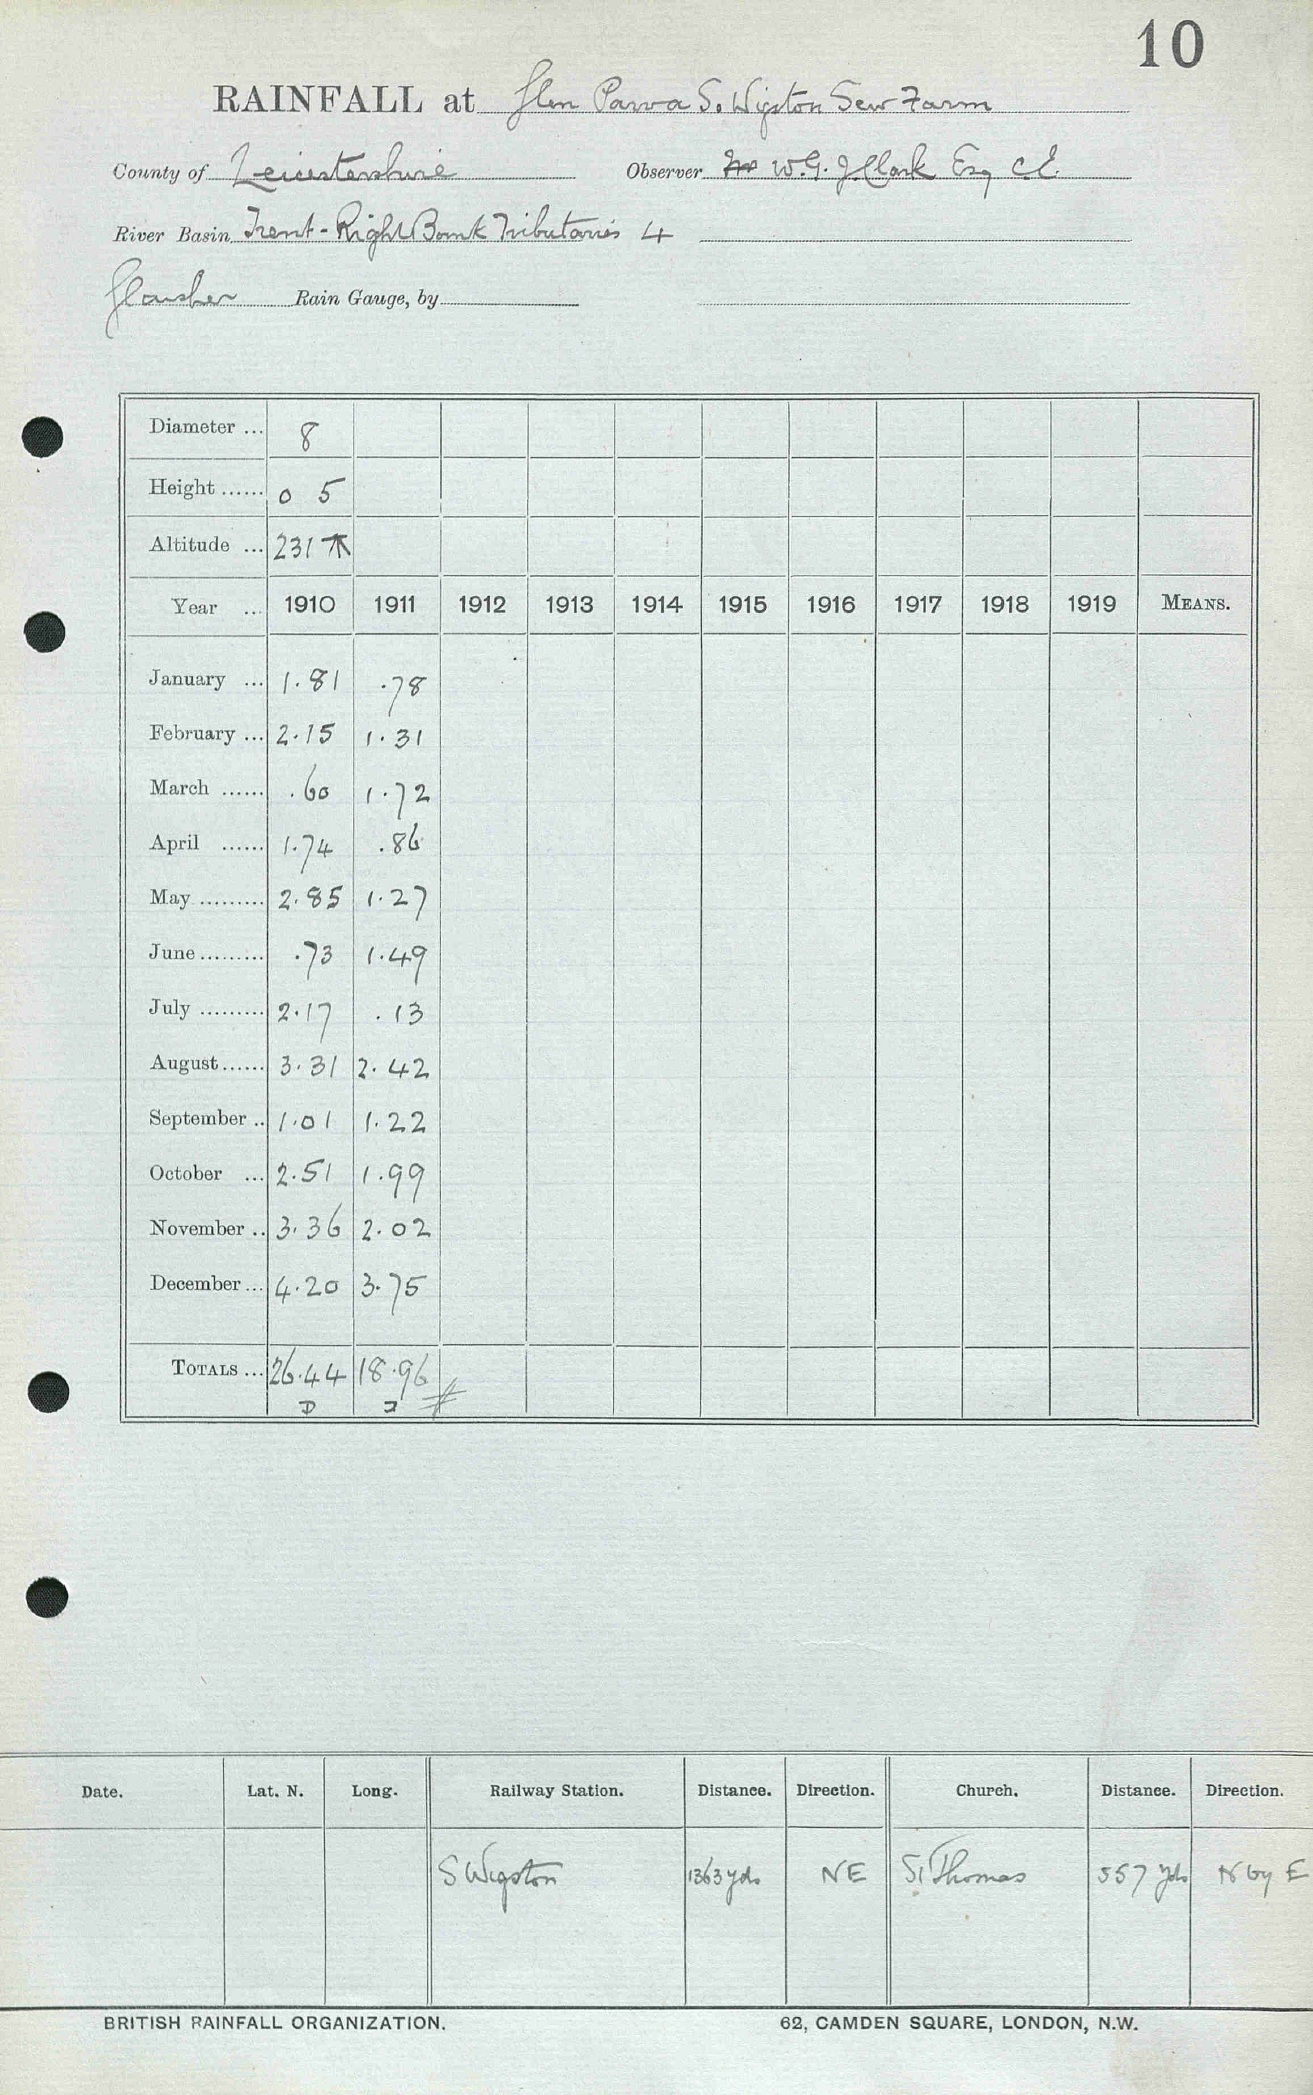 10
RAINFALL at Glen Parva S. Wigston Sew Farm
County of Leicestershire Observer W. G. J. Clark Esq C.E.
River Basin Trent - Right Bank Tributaries 4
Glaisher Rain Gauge, by
Diameter ... 8
Height ...... 0 5
Altitude ... 231
Year ... 1910 1911 1912 1913 1914 1915 1916 1917 1918 1919 MEANS.
January ... 1.81 .78
February ... 2.15 1.31
March ...... .60 1.72
April ...... 1.74 .86
May ......... 2.85 1.27
June ......... .73 1.49
July ......... 2.17 .13
August ...... 3.31 2.42
September .. 1.01 1.22
October ... 2.51 1.99
November .. 3.36 2.02
December ... 4.20 3.75
TOTALS ... 26.44 18.96
D
Date. Lat. N. Long. Railway Station. Distance. Direction. Church. Distance. Direction.
S Wigston 1363 yds NE St Thomas 557 yds N by E
BRITISH RAINFALL ORGANIZATION. 62, CAMDEN SQUARE, LONDON, N.W.